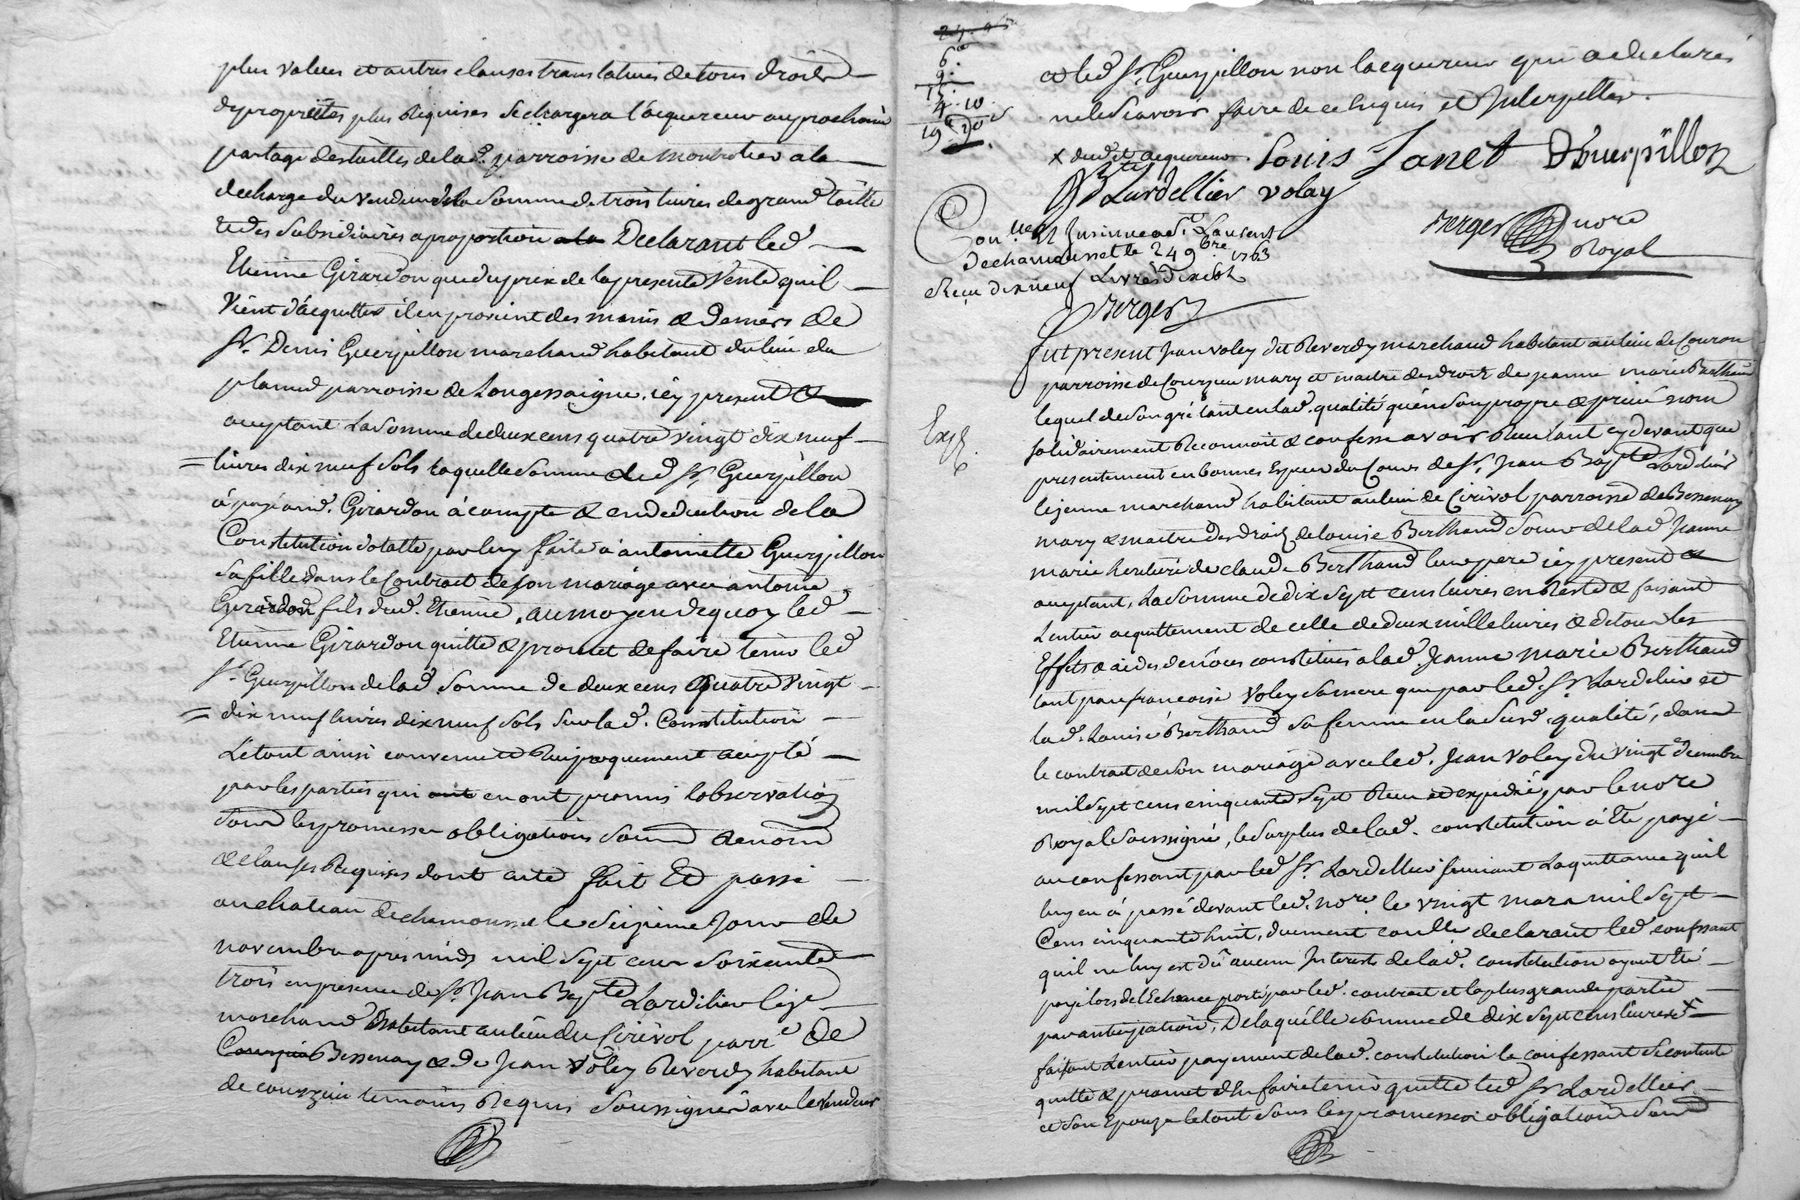 plus values et autres clauses translatives de tous droits
de proprietes plus Requises Se chargera l'acquereur au prochain
partage des tailles de lad. parroisse de Montrotier a la
decharge du vendeur de la Somme de trois livres de grand taille
et des Subsidiaires a proportion Declarant led
Etienne Girardon que du prix de la presente Vente quil
Vient d'acquitter il en provient des mains & deniers de
Sr. Denis Guerpillon marchand habitant du lieu du
parroisse de Longessaigne, icy present &
aceptant La Somme de deux cens quatre vingt dix neuf
livres dix neuf Sols laquelle Somme led Sr Guerpillon
à payé aud. Girardon à compte & en deduction de la
Constitution dotalle par luy faite à antoinette Guerpillon
Sa fille dans le Contract de son mariage avec antoine
Girardon fils dud. Etienne, au moyen de quoy led
Etienne Girardon quitte & promet de faire tenir led
Sr. Guerpillon de lad Somme de deux cens Quatre Vingt
dix neuf livres dix neuf Sols Sur lad. Constitution
Le tout ainsi convenu & Reciproquement accepté
par les parties qui en ont promis lobservation
Sous les promesses obligations Soumd Renond
& clauses Requises dont acte fait Et passé
au chateau de chamousset le Seizieme Jour de
novembre apres midy mil Sept cens Soixante
trois en presence de Sr. Jean Bapte Lardilier le je
marchand habitant au lieu du Cirévol parre de
Bessenay & de Jean Voley Reverdy habitant
de courzieu temoins Requis Soussignés avec le Vendeur
6
9.
4. 10
19 10
et led Sr. Guerpillon non lacquereur qui a declaré
ne le Scavoir faire de ce Enquis et Interpellé.
x dud. acquereur. Louis Janet DGuerpillon
Lardellier volay
Berger nore
Royal
Con.lle et Insinué ad. St Laurent
de chamousset le 24 9bre 1763
Reçu dix neuf Livres dix sols
Berger
Fut present Jean voley dit Reverdy marchand habitant au lieu de Couron
parroisse de Courzieu mary et maitre des droits de jeanne marie Berthaud
lequel de Son gré tant en lad. qualité qu'en Son propre & privé nom
Solidairement Reconnoit & confesse avoir Reçu tant cy devant que
presentement en bonnes Especes du Cours de Sr. Jean Bapte Lardelier
le jeune marchand habitant au lieu de Cirévol parroisse de Bessenay
mary & maitre des droits de Louise Berthaud Soeur de lad Jeanne
marie heritiere de claude Berthaud leur pere icy present &
aceptant, La Somme de dix Sept cens livres en Reste & faisant
Lentier acquittement de celle de deux mille livres & de tous les
Effets & aides de nôces constitués a lad Jeanne Marie Berthaud
tant par francoise Voley Sa mere que par led. Sr. Lardelier et
lad. Louise Berthaud Sa femme en la Susd. qualité, dans
le contrat de Son mariage avec led. Jean Voley du vingt decembre
mil Sept cens cinquante Sept Reçu et expedié par le nore
Royal Soussigné, le Surplus de lad. constitution à Eté payé
au confessant par led Sr. Lardellier Suivant La quittance quil
luy en à passé devant led. nore le vingt mars mil Sept
Cens cinquante huit, duement conllé declarant led confessant
quil ne luy est dû aucun Interets de lad. constitution ayant Eté
payé lors de l'Echeance porté par led. contrat et la plus grande partie
par anticipation, De laquelle Somme de dix Sept cens livres x
faisant Lentier payement de lad. constitution le confessant Se contente
quitte & promet d'En faire tenir quitte led Sr Lardellier
et Son Epouze le tout Sous les promesses obligations Soumd